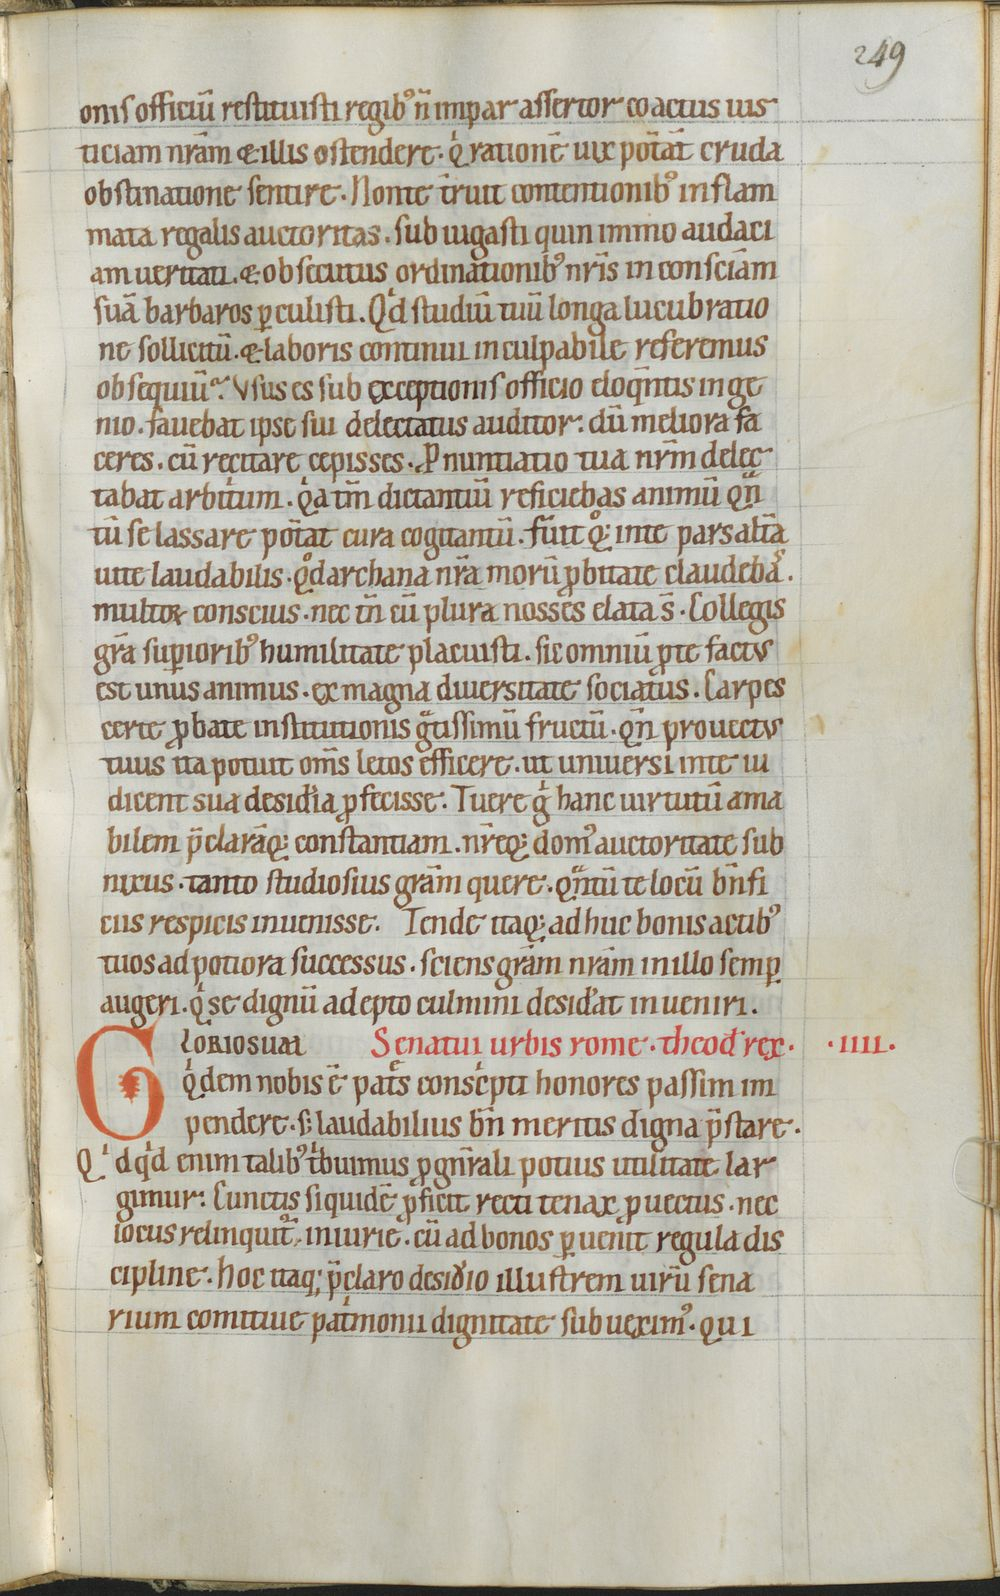 249
onis officiũ restituisti regib᷒ n̄ impar assertor coactus ius
ticiam nr̄am & illis ostendere. qͥ rationē uix potāt cruda
obstinatione sentire. Non te t̄ruit contentionib᷒ inflam
mata regalis auctoritas. subiugasti quin immo audaci
am ueritati. & obsecutus ordinationib᷒ nr̄is in consciām
suā barbaros ꝑculisti. Qͥd studiũ tuũ longa lucubratio
ne sollicitũ. & laboris continui inculpabile referemus
obsequiũ? Vsus es sub exceptionis officio eloq̄ntis inge
nio. fauebat ipse sui delectatus auditor: dũ meliora fa
ceres. cũ recitare cepisses. Ꝓnuntiatio tua nr̄m delec
tabat arbitͥum. qͥa tm̄ dictantiũ reficiebas animũ qᷓn
tũ se lassare potāt cura cogitantũ. Fuit qͦq; in te pars alt̄a
uite laudabilis. qͦd archana nr̄a morũ ꝓbitate claudebaˢ.
multoꝝ conscius. nec tn̄ cũ plura nosses elatꝰ. Collegis
gr̄a suꝑiorib᷒ humilitate placuisti. sic omniũ ꝓ te factus
est unus animus. ex magna diuersitate sociatus. Carpes
certe ꝓbate institutionis gᷓtissimũ fructũ. qn̄ prouectus
tuus ita potuit om̄s letos efficere. ut uniuersi in te iu
dicent sua desid̄ia ꝓfecisse. Tuere gͥ hanc uirtutũ ama
bilem p̄clarāq; constantiam. nr̄eq; dom᷒ auctoritate sub
nixus. tanto studiosius gr̄am quere. qᷓntũ te locũ bn̄fi
ciis respicis inuenisse. Tende itaq; adhuc bonis actib᷒
tuos ad potiora successus. sciens gr̄am nr̄am in illo semꝑ
augeri. qͥ se dignũ adepto culmini desid̄at inueniri.
GLORIOSUM Senatui urbis rome. theod̄ rex. .IIII.
qͥdem nobis ē pat̄s consc̄pti honores passim im
pendere. s; laudabilius bn̄ meritis digna p̄stare.
Qͥdqͥd enim talib᷒ tͥbuimus ꝓ gn̄rali potius utilitate lar
gimur: Cunctis siquidē ꝓficit recti tenax ꝓuectus. nec
locus relinquit᷑ iniurie. cũ ad bonos ꝑuenit regula dis
cipline. hoc itaq; p̄claro desid̄io illustrem uirũ sena
rium comitiue patͥmonii dignitate subuexim᷒. qui